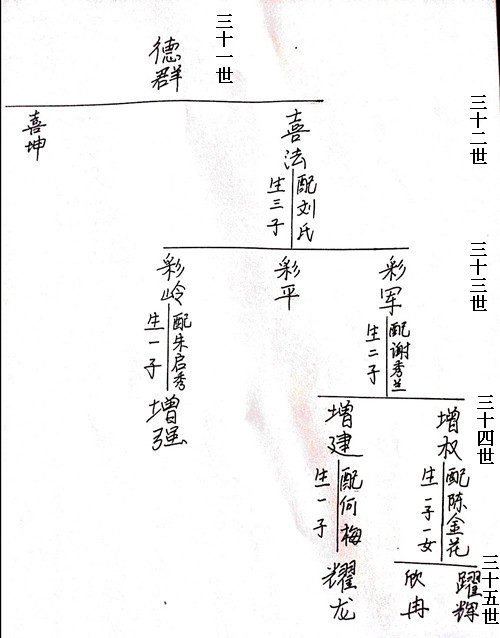 三十一世
德群
三十二世
喜坤
喜法
配刘氏
生三子
三十三世
彩岭
配朱启秀
生一子
彩平
彩军
配谢秀兰
生二子
三十四世
增强
增建
配何梅
生一子
增权
配陈金花
生一子一女
三十五世
耀龙
欣冉
躍辉